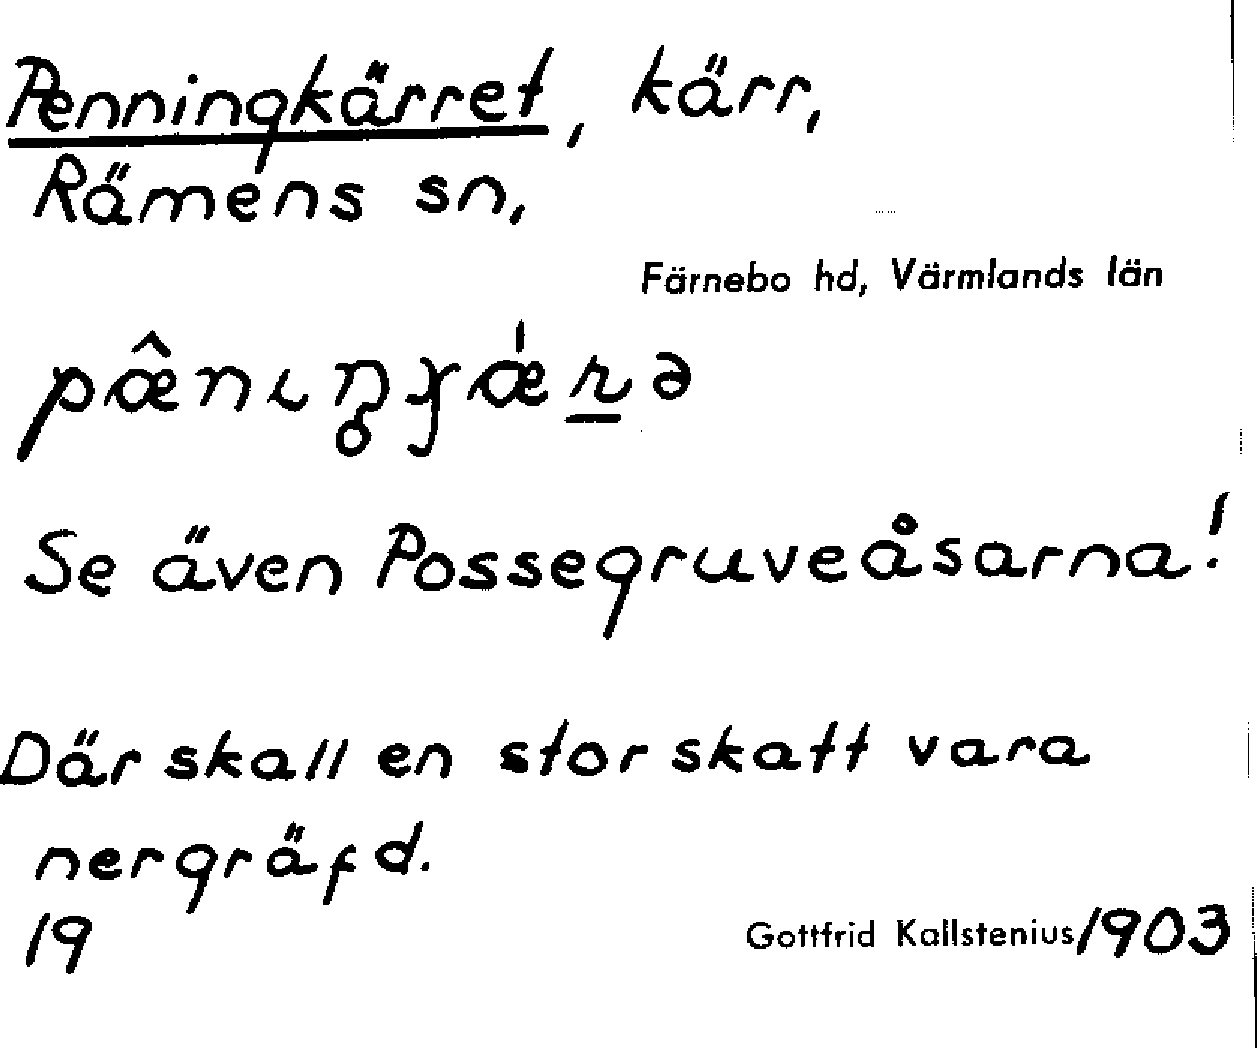 Penningkärret, kärr,
Rämens sn,
Färnebo hd, Värmlands län
Se även Possegruveåsarna!
Där skall en stor skatt vara
nergräfd.
19
Gottfrid Kallstenius/1903